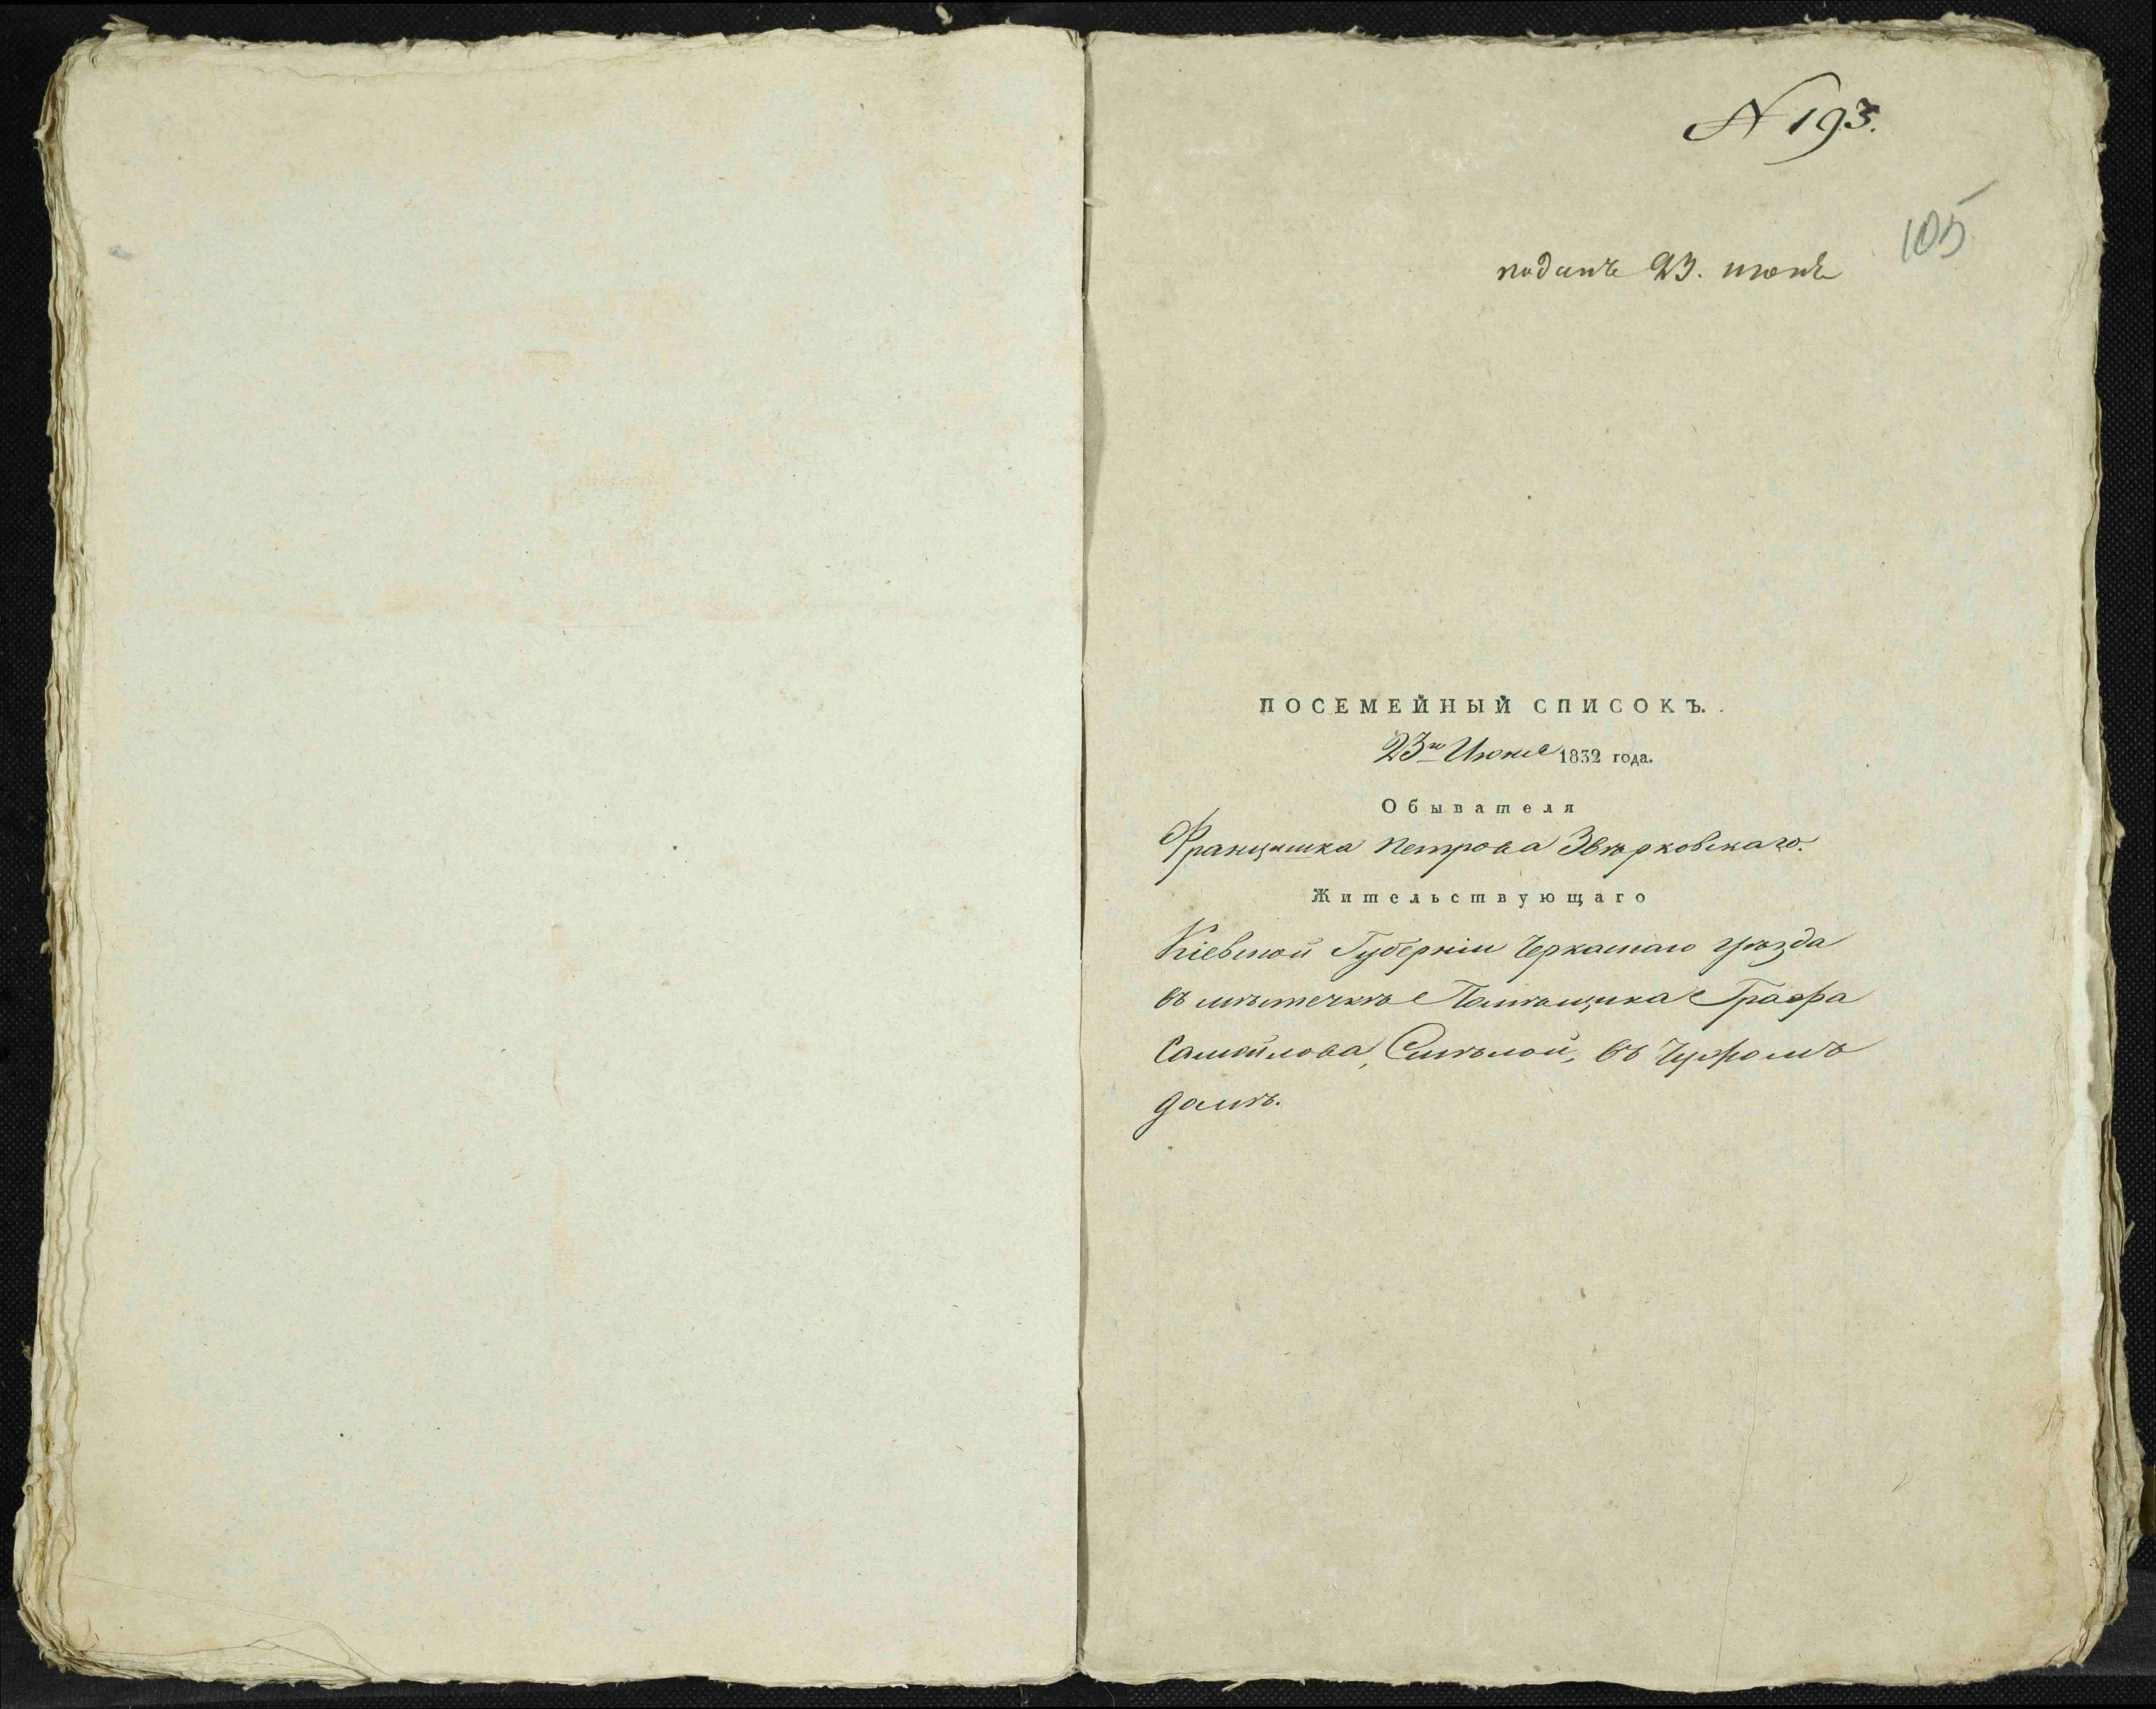 N 193.
105
поданъ 23. июнь
ПОСЕМЕЙНЫЙ СПИСОКЪ.
23го Июня 1832 года.
Обывателя
Францишка Петрова Звѣрковскаго.
Жительствующаго
Кіевской Губерніи Черкаскаго уѣзда
въ мѣстечкѣ Помѣщика Графа
Самойлова, Смѣлой, въ Чужомъ
домѣ.